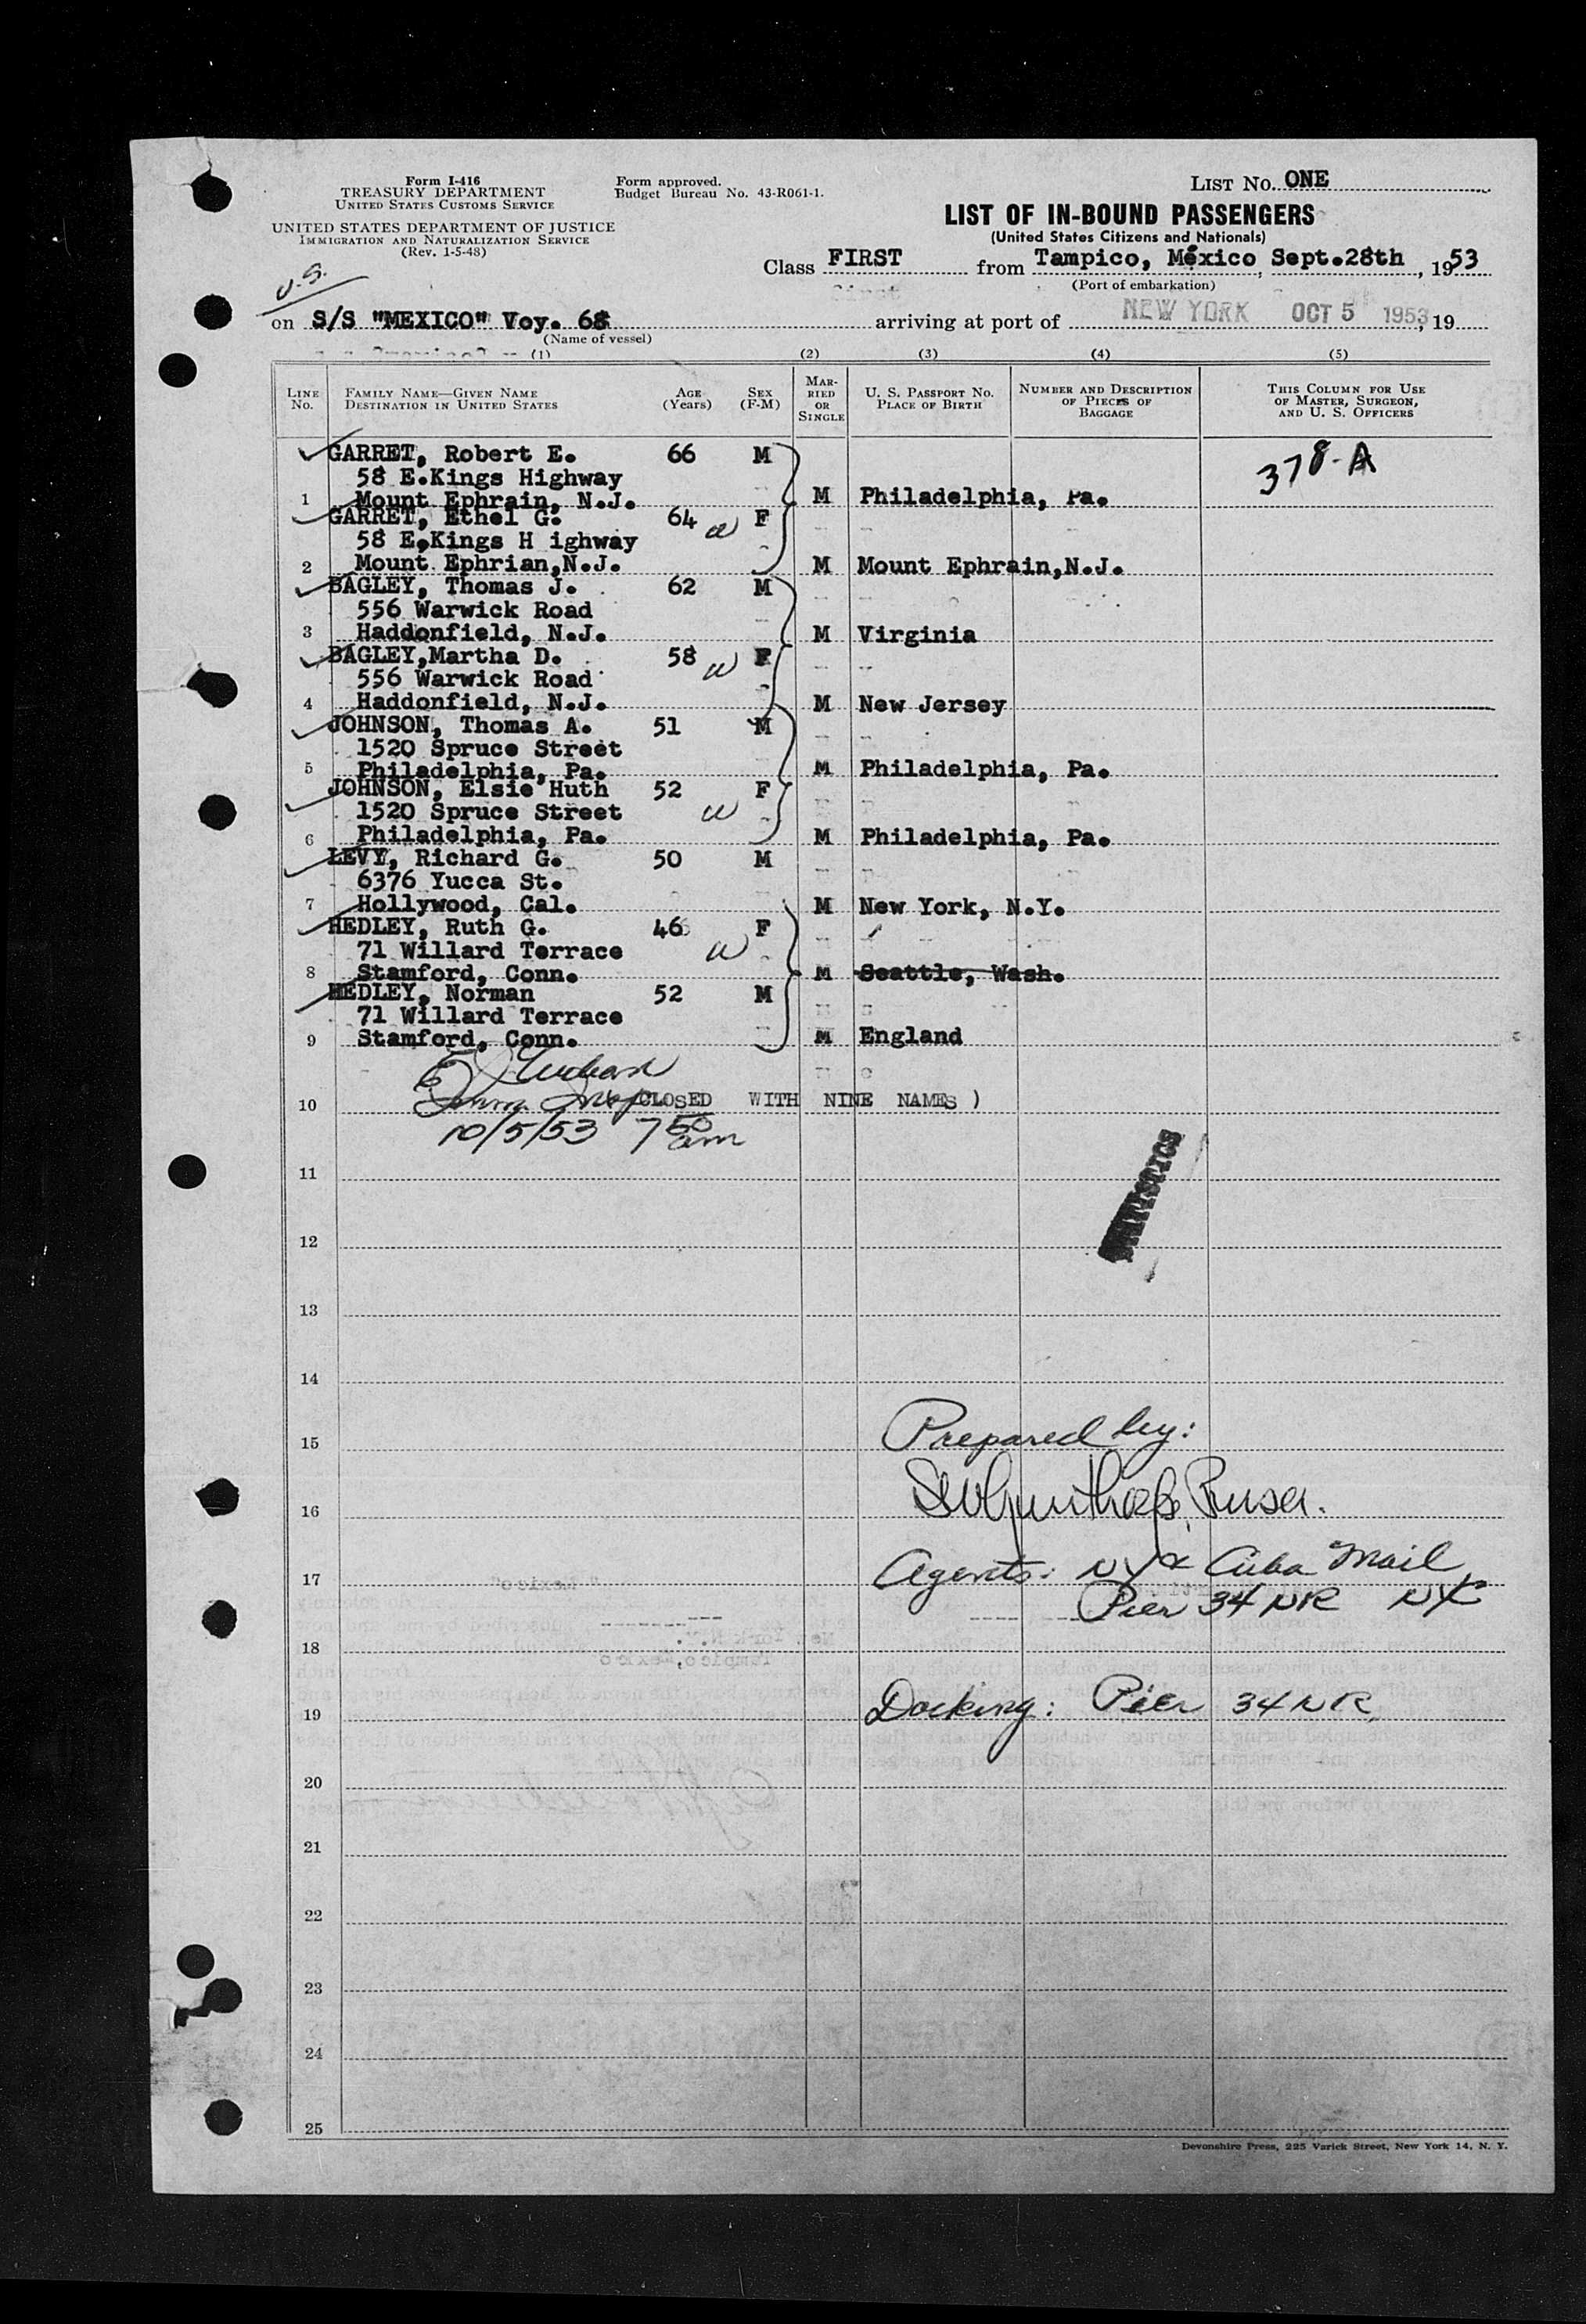 Form I-416
TREASURY DEPARTMENT
UNITED STATES CUSTOMS SERVICE
Form approved.
Budget Bureau No. 43-R061-1.
LIST NO. ONE
UNITED STATES DEPARTMENT OF JUSTICE
IMMIGRATION AND NATURALIZATION SERVICE
(Rev. 1-5-48)
LIST OF IN-BOUND PASSENGERS
(United States Citizens and Nationals)
U.S.
Class FIRST from Tampico, Mexico, Sept.28th, 1953
(Port of embarkation)
on S/S "MEXICO" Voy. 68 arriving at port of NEW YORK OCT 5 1953, 19
(Name of vessel)
(1) (2) (3) (4) (5)
LINE NO. FAMILY NAME—GIVEN NAME DESTINATION IN UNITED STATES AGE (Years) SEX (F-M) MARRIED OR SINGLE U. S. PASSPORT NO. PLACE OF BIRTH NUMBER AND DESCRIPTION OF PIECES OF BAGGAGE THIS COLUMN FOR USE OF MASTER, SURGEON, AND U. S. OFFICERS
GARRET, Robert E. 66 M 378-A
58 E.Kings Highway
1 Mount Ephrain, N.J. M Philadelphia, Pa.
GARRET, Ethel G. 64 F
58 E.Kings H ighway
2 Mount Ephrian,N.J. M Mount Ephrain,N.J.
BAGLEY, Thomas J. 62 M
556 Warwick Road
3 Haddonfield, N.J. M Virginia
BAGLEY,Martha D. 58 F
556 Warwick Road
4 Haddonfield, N.J. M New Jersey
JOHNSON, Thomas A. 51 M
1520 Spruce Street
5 Philadelphia, Pa. M Philadelphia, Pa.
JOHNSON, Elsie Huth 52 F
1520 Spruce Street
6 Philadelphia, Pa. M Philadelphia, Pa.
LEVY, Richard G. 50 M
6376 Yucca St.
7 Hollywood, Cal. M New York, N.Y.
HEDLEY, Ruth G. 46 F
71 Willard Terrace
8 Stamford, Conn. M Seattle, Wash.
HEDLEY, Norman 52 M
71 Willard Terrace
9 Stamford, Conn. M England
10 (CLOSED WITH NINE NAMES )
10/5/53 7 50 am
11
12
13
14
15 Prepared by:
16
17 Agents: NY & Cuba Mail
Pier 34 NR NYC
18
19 Docking: Pier 34 NR
20
21
22
23
24
25
Devonshire Press, 225 Varick Street, New York 14, N. Y.